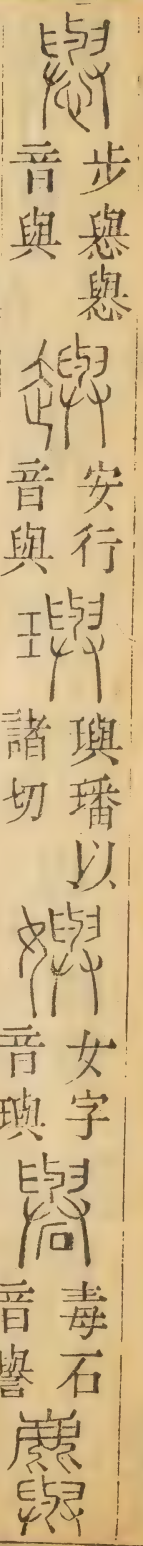 㦛
步㦛㦛
音與
𧾚
安行
音與
璵
璵璠以
諸切
嬩
女字
音璵
礜
毒石
音譽